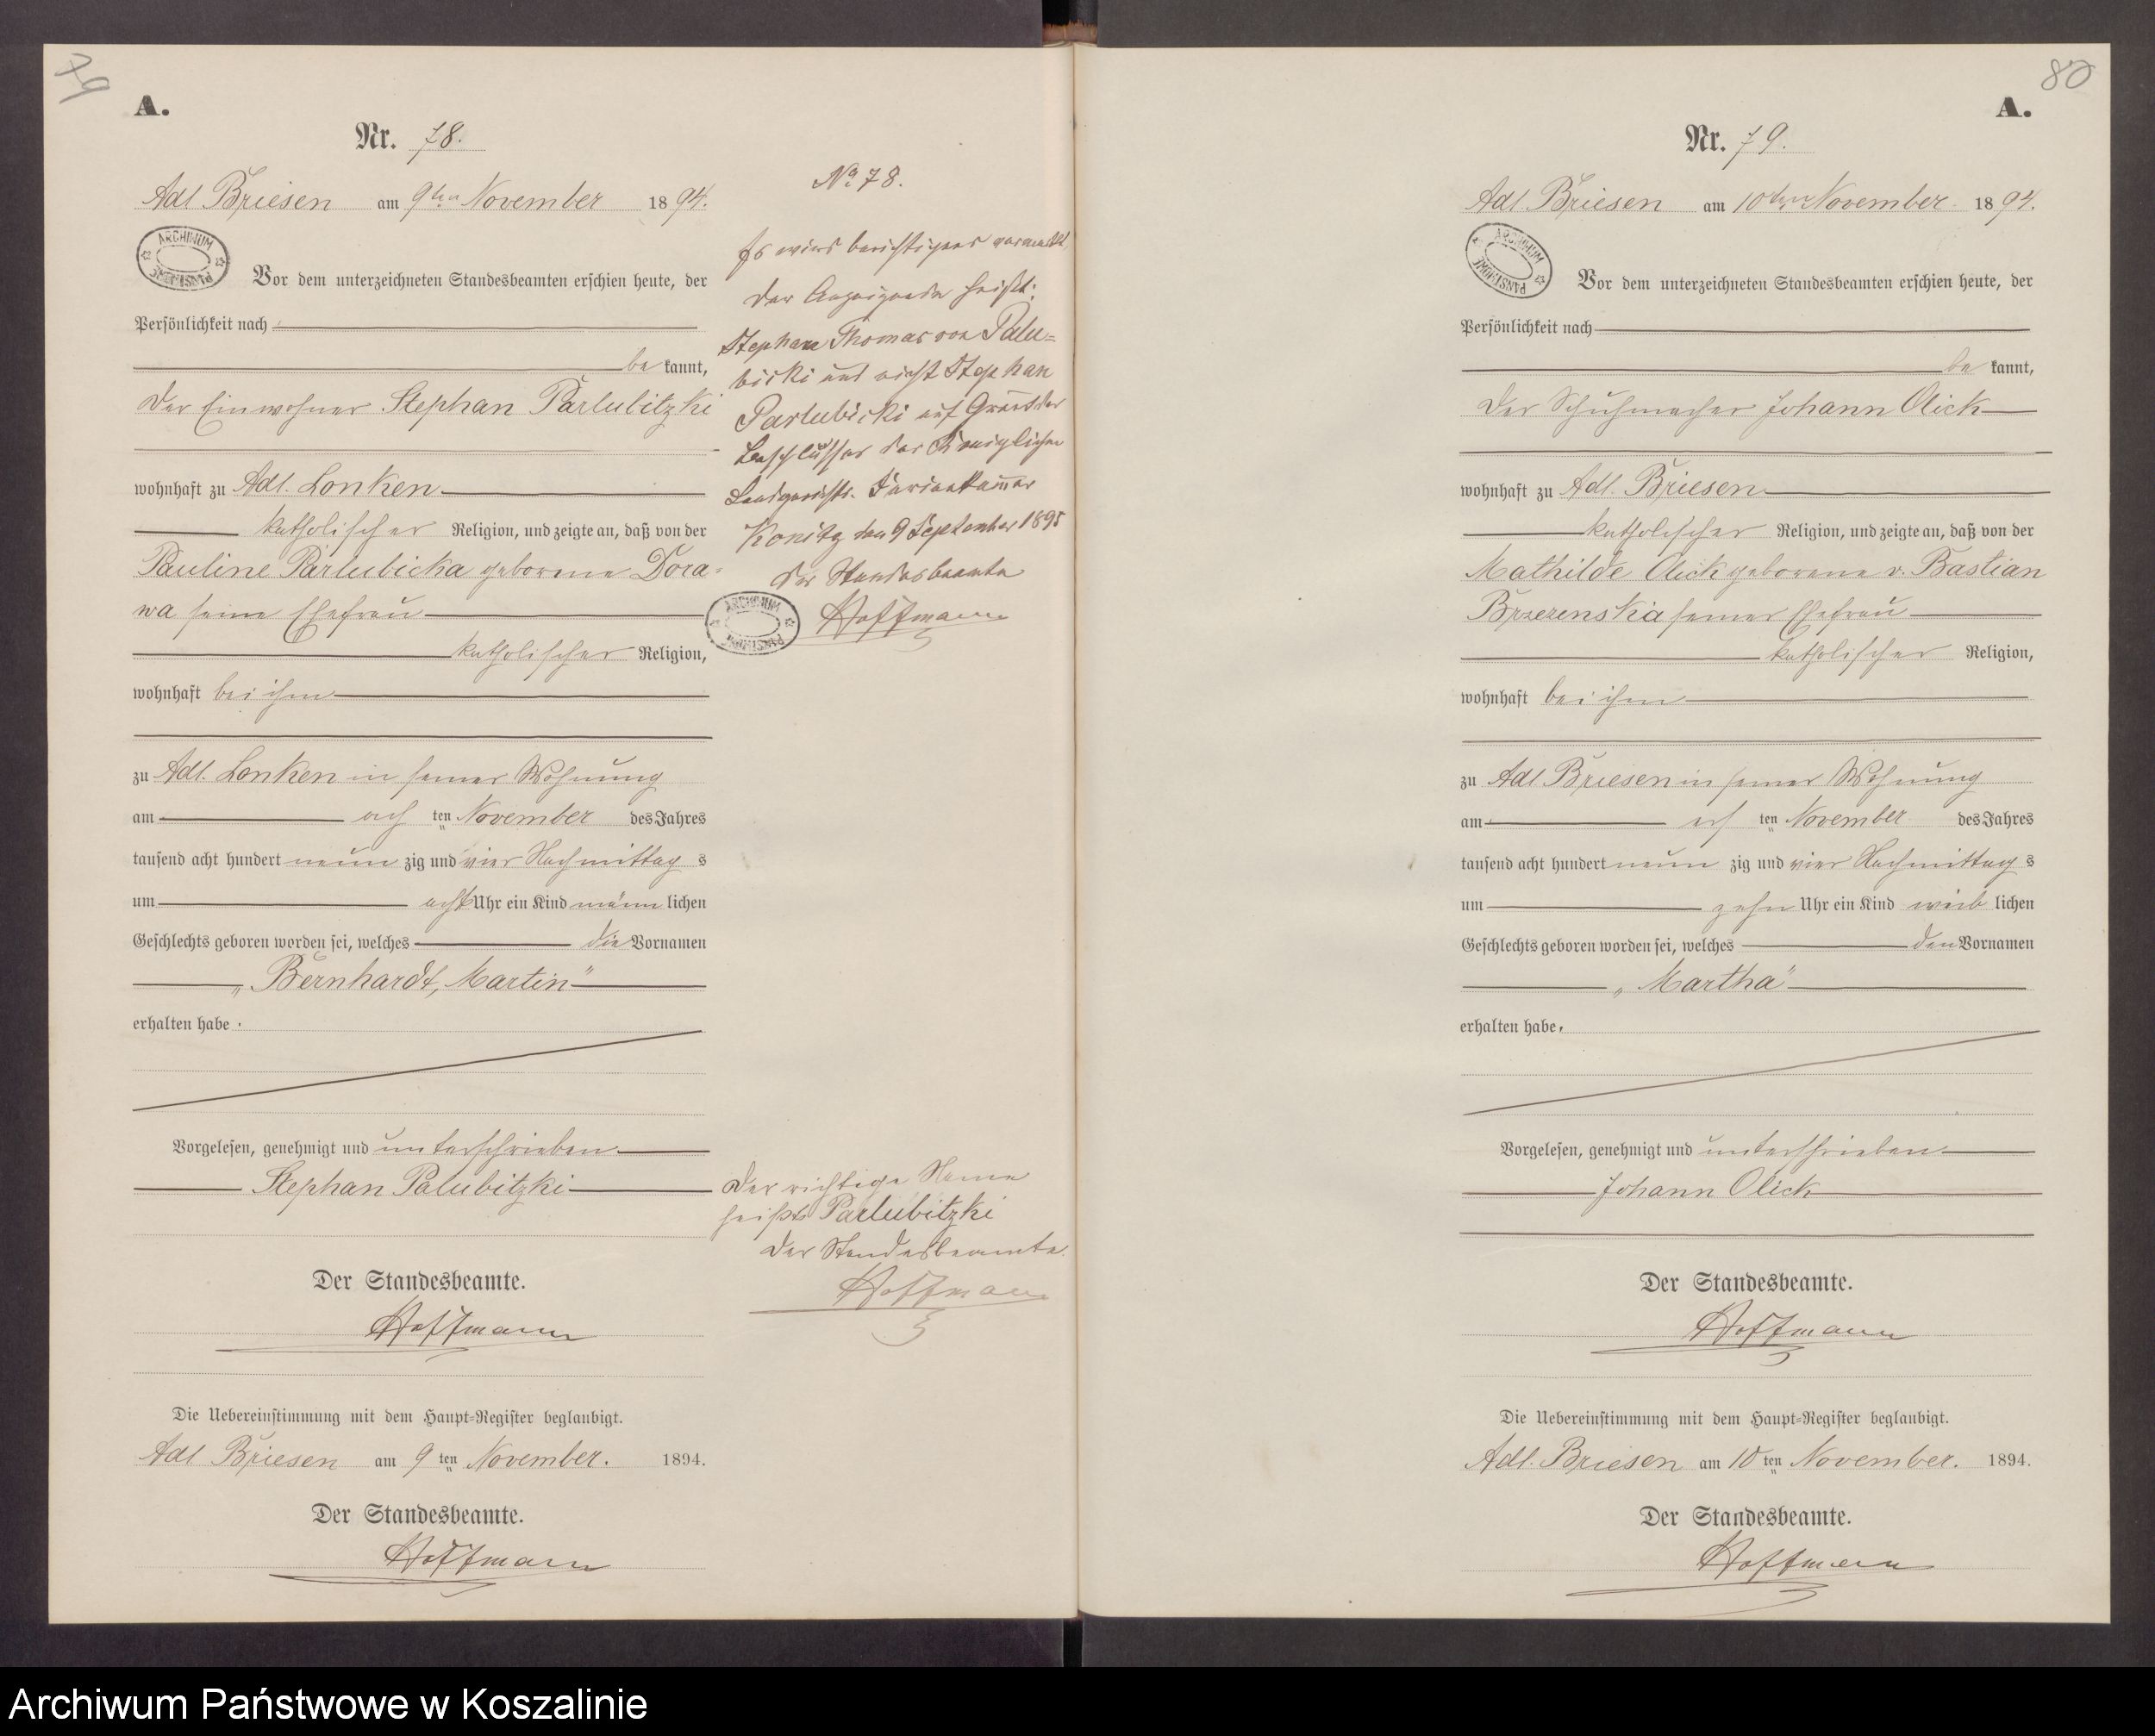 79
A.
Nr. 78.
Adl Briesen am 9ten November 1894.
ARCHIWUM PAŃSTWOWE
Vor dem unterzeichneten Standesbeamten erschien heute, der
Persönlichkeit nach
be kannt,
der Einwohner Stephan Parlubitzki
wohnhaft zu Adl. Lonken
katholischer Religion, und zeigte an, daß von der
Pauline Parlubicka geborene Dora-
wa seine Ehefrau
katholischer Religion,
wohnhaft bei ihm
zu Adl. Lonken in seiner Wohnung
am ach ten November des Jahres
tausend acht hundert neun zig und vier Nachmittag s
um acht Uhr ein Kind männ lichen
Geschlechts geboren worden sei, welches die Vornamen
„Bernhardt, Martin“
erhalten habe.
Vorgelesen, genehmigt und unterschrieben
Stephan Palubitzki
Der Standesbeamte.
Hoffmann
Die Uebereinstimmung mit dem Haupt-Register beglaubigt.
Adl Briesen am 9 ten November. 1894.
Der Standesbeamte.
Hoffmann
No 78.
Es wird berichtigend vermerkt
der Anzeigende heißt:
Stephan Thomas von Palu-
bicki und nicht Stephan
Parlubicki auf Grund des
Beschlusses des Königlichen
Landgerichts. Ferienkammer
Konitz den 9 September 1895
Der Standesbeamte
Hoffmann
ARCHIWUM PAŃSTWOWE
Der richtige Name
heißt Parlubitzki
Der Standesbeamte.
Hoffmann
80
A.
Nr. 79.
Adl. Briesen am 10ten November 1894.
ARCHIWUM PAŃSTWOWE
Vor dem unterzeichneten Standesbeamten erschien heute, der
Persönlichkeit nach
be kannt,
der Schuhmacher Johann Olick
wohnhaft zu Adl. Briesen
katholischer Religion, und zeigte an, daß von der
Mathilde Olick geborene v. Bastian
Brzezenskia seiner Ehefrau
katholischer Religion,
wohnhaft bei ihm
zu Adl Briesen in seiner Wohnung
am ach ten November des Jahres
tausend acht hundert neun zig und vier Nachmittag s
um zehn Uhr ein Kind weib lichen
Geschlechts geboren worden sei, welches den Vornamen
„Martha“
erhalten habe.
Vorgelesen, genehmigt und unterschrieben
Johann Olick
Der Standesbeamte.
Hoffmann
Die Uebereinstimmung mit dem Haupt-Register beglaubigt.
Adl. Briesen am 10 ten November. 1894.
Der Standesbeamte.
Hoffmann
Archiwum Państwowe w Koszalinie